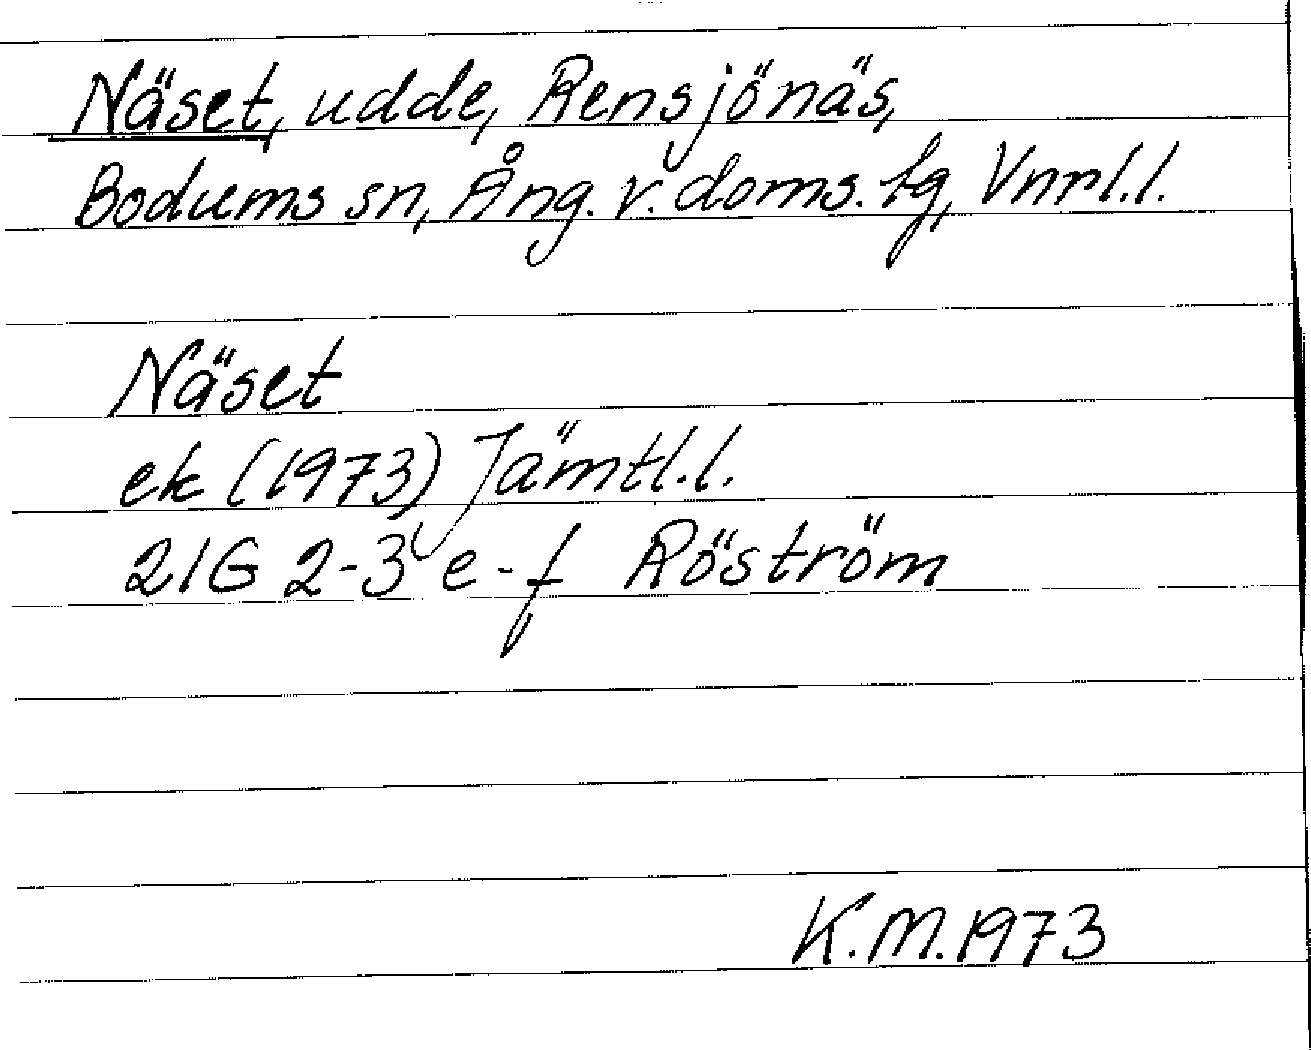 Näset, udde, Rensjönäs,
Bodums sn, Ång. v. doms. tg, Vnrl.l.
Näset
ek (1973) Jämtl.l.
21G 2-3 e-f Röström
K.M. 1973